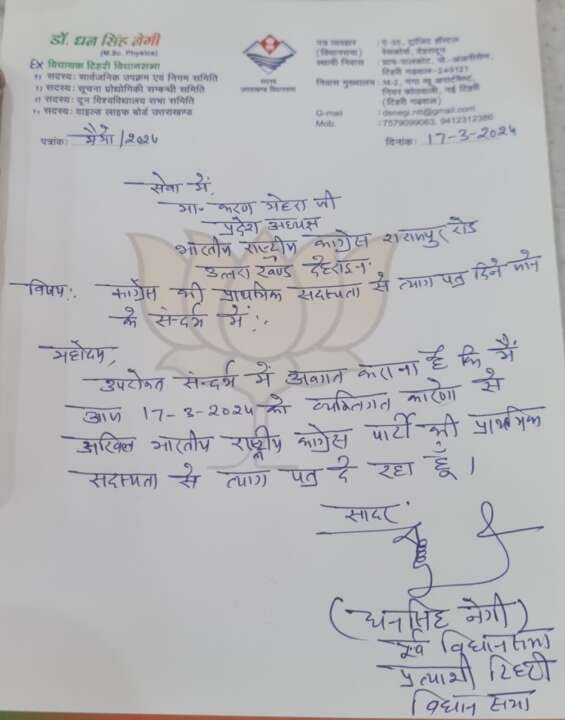 डॉ. धन सिंह नेगी
(M.Sc. Physics)
Ex विधायक टिहरी विधानसभा
सदस्यः सार्वजनिक उपक्रम एवं निगम समिति
सदस्यः सूचना प्रोद्योगिकी सम्बन्धी समिति
सदस्यः दून विश्वविद्यालय सभा समिति
सदस्यः वाइल्ड लाइफ बोर्ड उत्तराखण्ड
पत्रांकः मैमो/2024
सदस्य
उत्तराखण्ड विधानसभा
पत्र व्यवहार : ए-35, ट्रांजिट हॉस्टल
(विधानसभा) रेसकोर्स, देहरादून
स्थायी निवास : ग्राम पालकोट, पो.-अंजनीसैंण,
टिहरी गढ़वाल-249121
निवास मुख्यालय : M-2, गंगा व्यू अपार्टमेंट,
निकट कोतवाली, नई टिहरी
(टिहरी गढ़वाल)
G-mail : dsnegi.nt@gmail.com
Mob. : 7579099063, 9412312386
दिनांकः 17-3-2024
सेवा में,
मा० करण मेहरा जी
प्रदेश अध्यक्ष
भारतीय राष्ट्रीय कांग्रेस राजपुर रोड
उत्तराखण्ड देहरादून
विषय: कांग्रेस की प्राथमिक सदस्यता से त्याग पत्र दिये जाने
के सन्दर्भ में:
महोदय,
उपरोक्त सन्दर्भ में अवगत कराना है कि मैं
आज 17-3-2024 को व्यक्तिगत कारणो से
अखिल भारतीय राष्ट्रीय कांग्रेस पार्टी की प्राथमिक
सदस्यता से त्याग पत्र दे रहा हूँ।
सादर
(धनसिंह नेगी)
पूर्व विधानसभा
प्रत्याशी टिहरी
विधान सभा